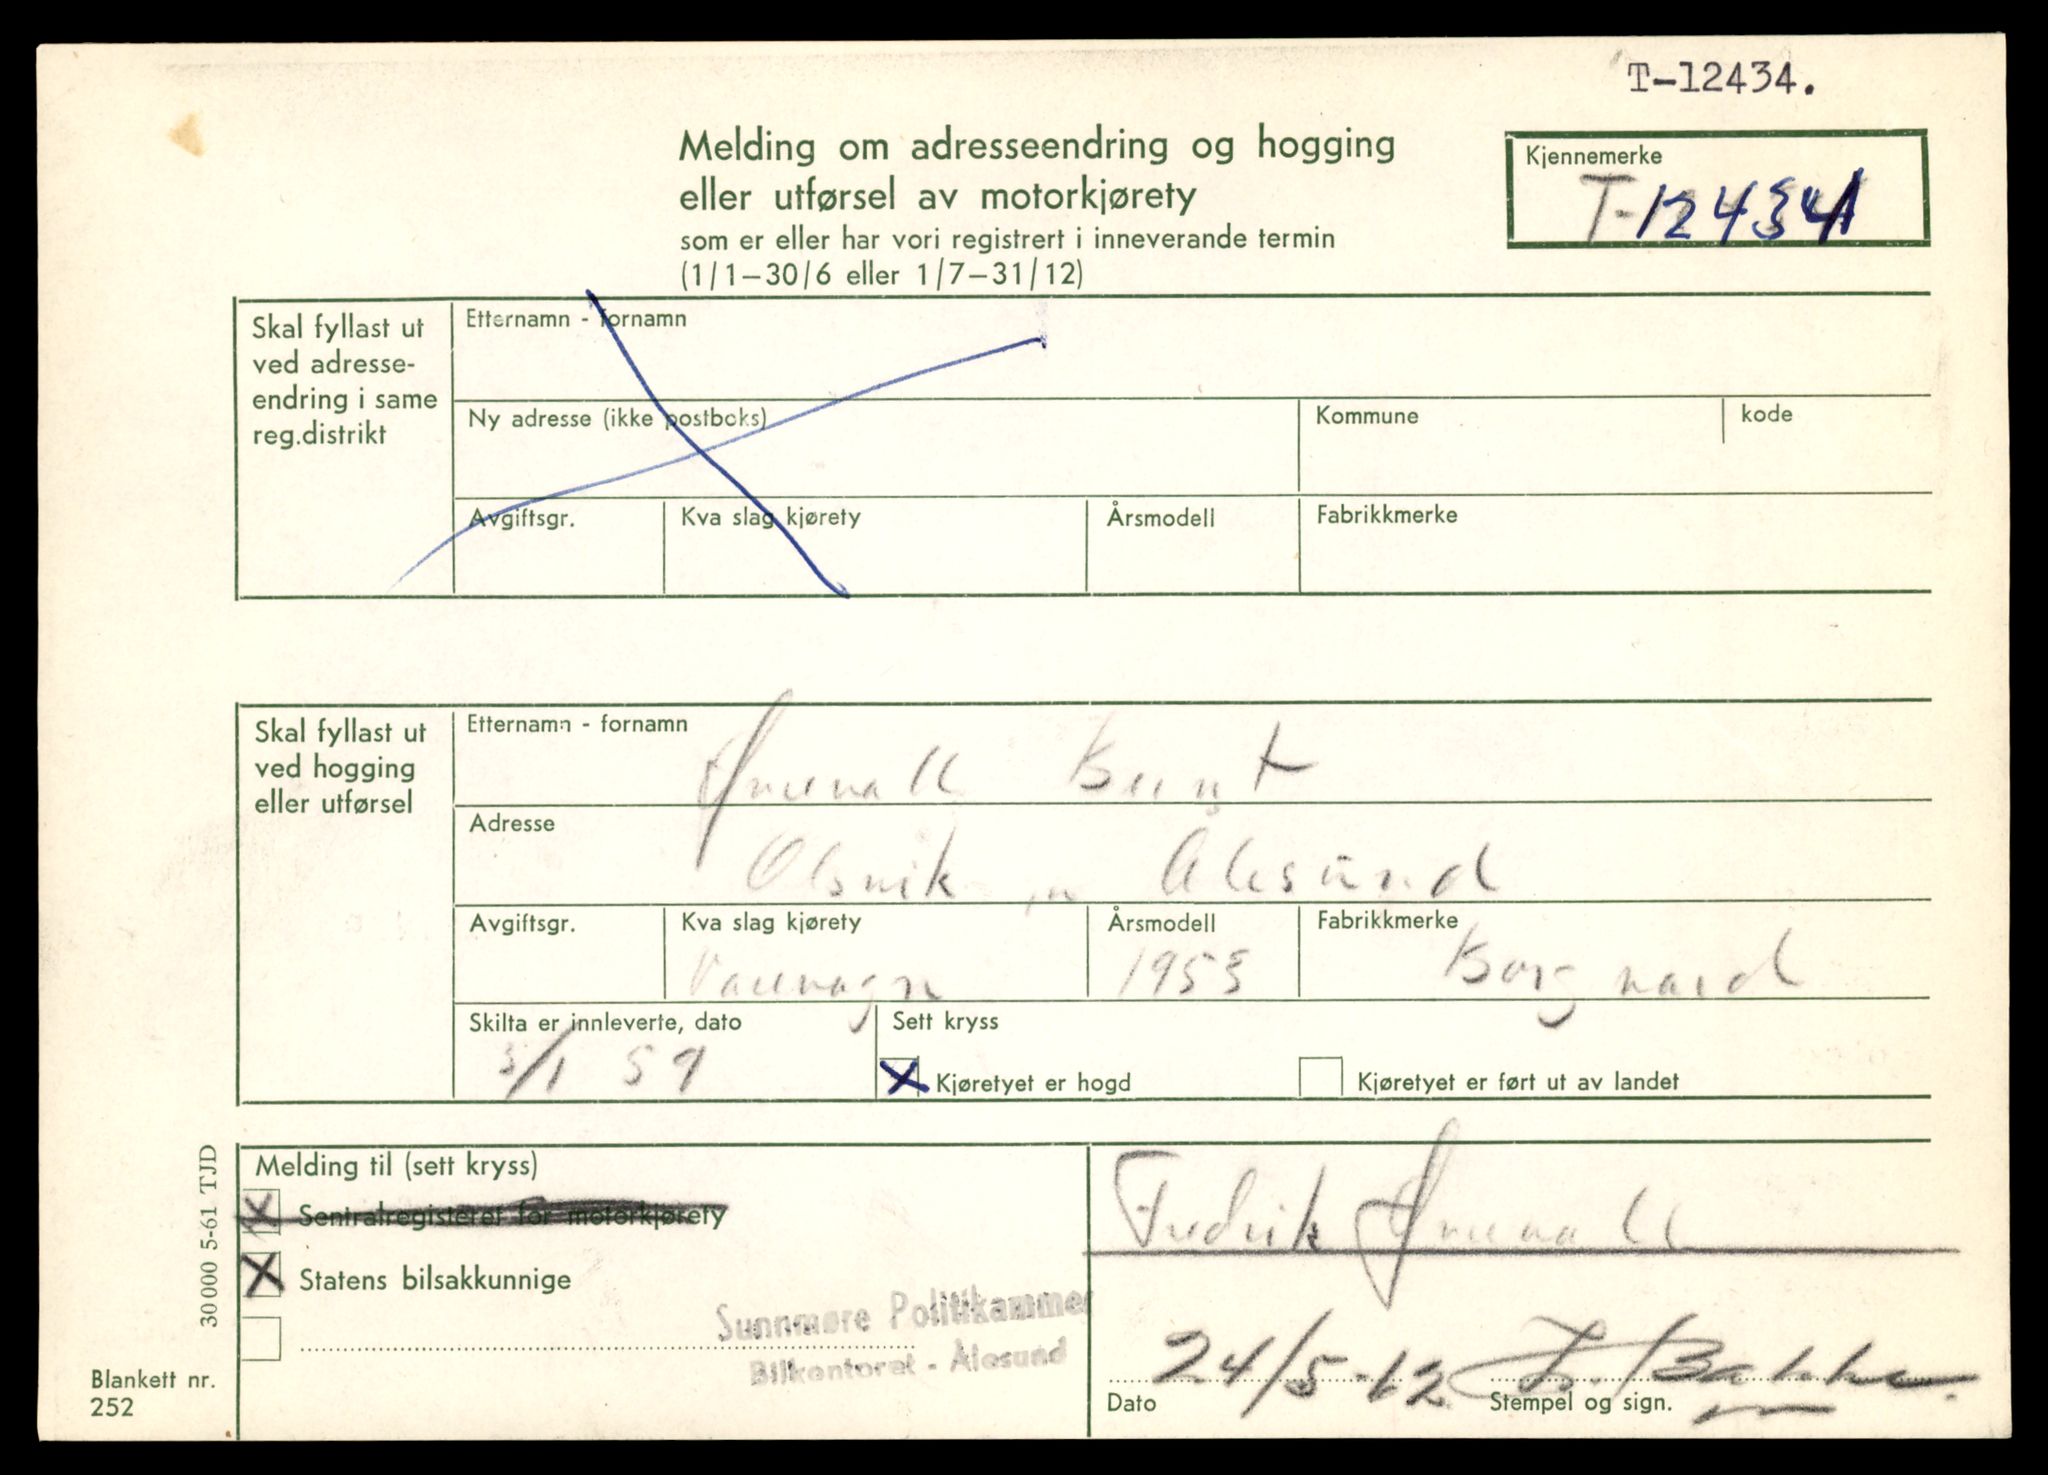 T-12434.
Melding om adresseendring og hogging
eller utførsel av motorkjørety
som er eller har vori registrert i inneverande termin
(1/1–30/6 eller 1/7–31/12)
Kjennemerke
T-12434
Skal fyllast ut
ved adresse-
endring i same
reg.distrikt
Etternamn - fornamn
Ny adresse (ikke postboks)
Kommune
kode
Avgiftsgr.
Kva slag kjørety
Årsmodell
Fabrikkmerke
Skal fyllast ut
ved hogging
eller utførsel
Etternamn - fornamn
Adresse
Alesund
Avgiftsgr.
Kva slag kjørety
Varevogn
Årsmodell
1953
Fabrikkmerke
Borgward
Skilta er innleverte, dato
3/1 59
Sett kryss
X Kjøretyet er hogd
Kjøretyet er ført ut av landet
Melding til (sett kryss)
X Sentralregisteret for motorkjørety
X Statens bilsakkunnige
Sunnmøre Politikammer
Bilkontoret - Ålesund
Fredrik
24/5-62
Dato
Bakke
Stempel og sign.
30 000 5-61 TJD
Blankett nr.
252